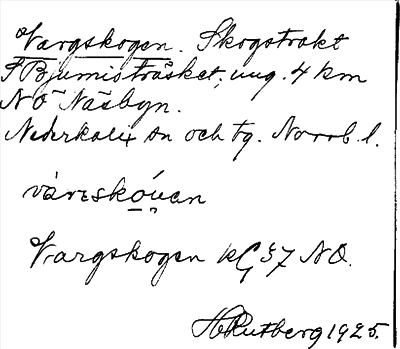 Vargskogen. Skogstrakt
f Bjumisträsket, ung. 4 km
NÖ Näsbyn.
Nederkalix sn och tg. Norrb. l.
várrskóuan
Vargskogen kG 37 NO.
H Rutberg 1925.